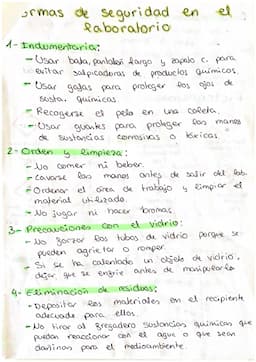 ormas de seguridad en el
laboratorio
1- Indumentaria:
- Usar bata, pantalón largo y zapato c. para
evitar salpicaduras de productos químicos.
- Usar gafas para proteger los ojos de
susta. químicas.
- Recogerse el pelo en una coleta.
- Usar guantes para proteger las manos
de sustancias corrosivas o tóxicas.
2- Orden y limpieza:
- No comer ni beber.
- Lavarse las manos antes de salir del lab.
- Ordenar el área de trabajo y limpiar el
material utilizado.
- No jugar ni hacer bromas
3- Precauciones con el vidrio:
- No forzar los tubos de vidrio porque se
pueden agrietar o romper.
- Si se ha calentado un objeto de vidrio,
dejar que se enfríe antes de manipularlo
4- Eliminación de residuos:
- Depositar los materiales en el recipiente
adecuado para ellos.
- No tirar al fregadero sustancias químicas que
puedan reaccionar con el agua o que sean
dañinas para el medioambiente.